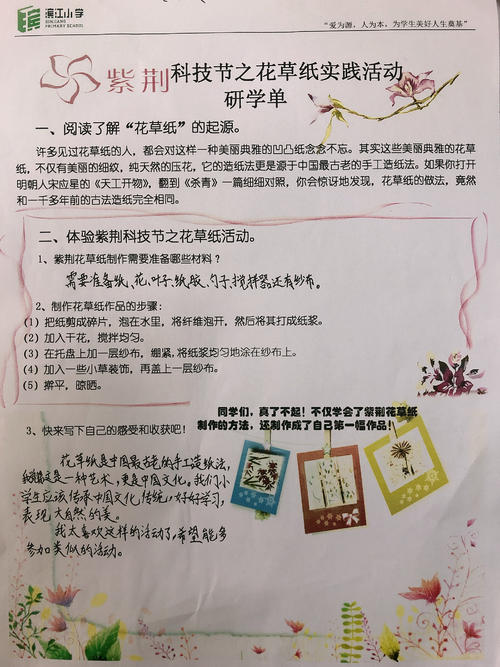 滨江小学
BINJIANG PRIMARY SCHOOL
“爱为源，人为本，为学生美好人生奠基”
紫荆科技节之花草纸实践活动
研学单
一、阅读了解“花草纸”的起源。
许多见过花草纸的人，都会对这样一种美丽典雅的凹凸纸念念不忘。其实这些美丽典雅的花草
纸，不仅有美丽的细纹，纯天然的压花，它的造纸法更是源于中国最古老的手工造纸法。如果你打开
明朝人宋应星的《天工开物》，翻到《杀青》一篇细细对照，你会惊讶地发现，花草纸的做法，竟然
和一千多年前的古法造纸完全相同。
二、体验紫荆科技节之花草纸活动。
1、紫荆花草纸制作需要准备哪些材料？
需要准备纸、花、叶子、纸胶、勺子、搅拌器还有纱布。
2、制作花草纸作品的步骤：
(1) 把纸剪成碎片，泡在水里，将纤维泡开，然后将其打成纸浆。
(2) 加入干花，搅拌均匀。
(3) 在托盘上加一层纱布，绷紧，将纸浆均匀地涂在纱布上。
(4) 加入一些小草装饰，再盖上一层纱布。
(5) 擀平，晾晒。
同学们，真了不起！不仅学会了紫荆花草纸
制作的方法，还制作成了自己第一幅作品！
3、快来写下自己的感受和收获吧！
花草纸是中国最古老的手工造纸法，
是一种艺术，更是中国文化。我们小
学生应该传承中国文化传统，好好学习，
表现大自然的美。
我太喜欢这样的活动了，希望能多
参加类似的活动。